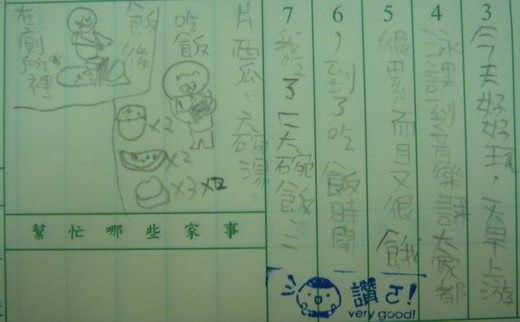 3
今天好好玩,天早上游
4
泳課到音樂課大家都
5
很累而且又很餓
6
,到了吃飯時間
7
我吃了一大碗飯、二
片西瓜、碗湯.
吃飯
×2
×2
×3
飯後
在廁所裡
幫忙哪些家事
讚ㄛ!
very good!